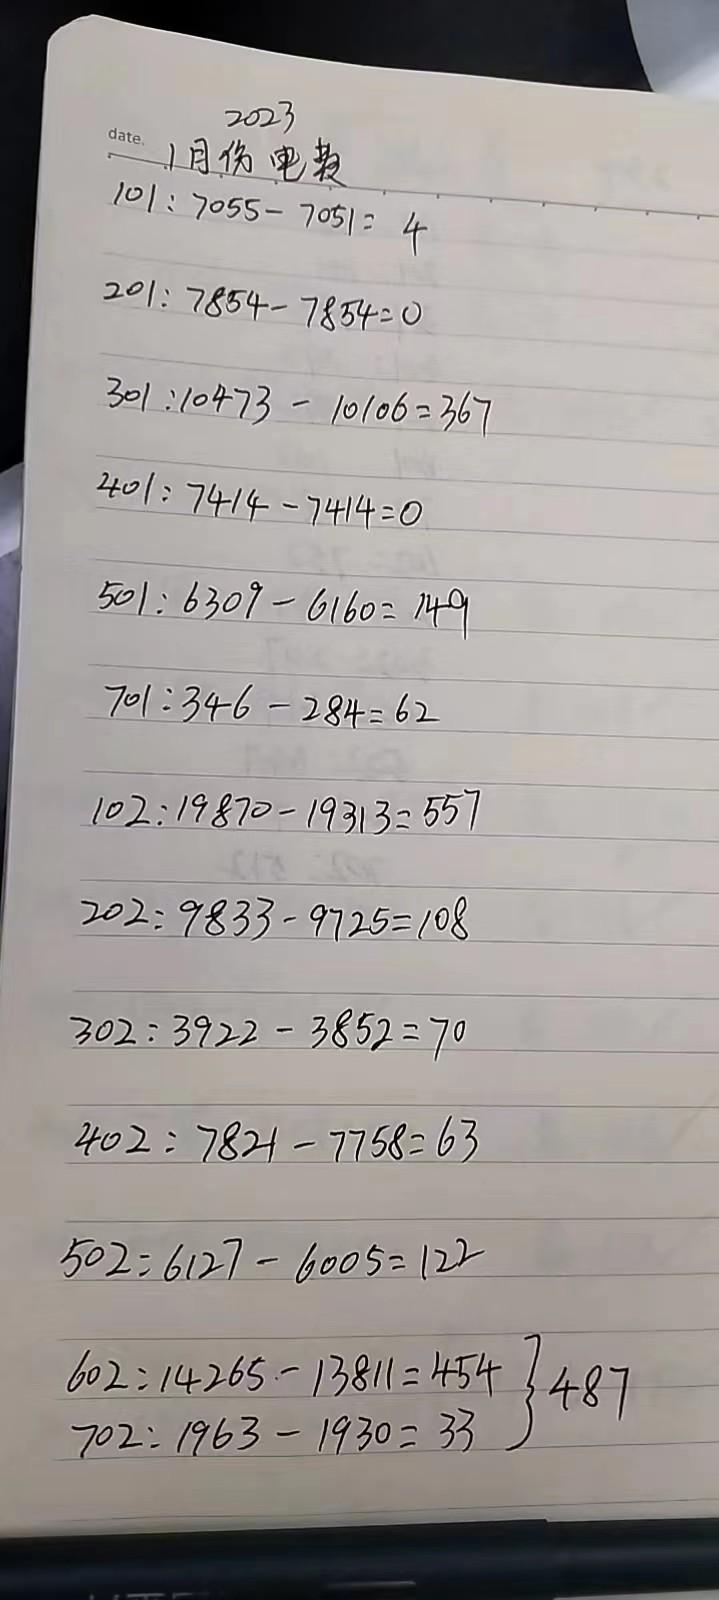 2023
date.
1月份电数
101:7055-7051=4
201:7854-7854=0
301:10473-10106=367
401:7414-7414=0
501:6309-6160=149
701:346-284=62
102:19870-19313=557
202:9833-9725=108
302:3922-3852=70
402:7821-7758=63
502:6127-6005=122
602:14265-13811=454
702:1963-1930=33 }487